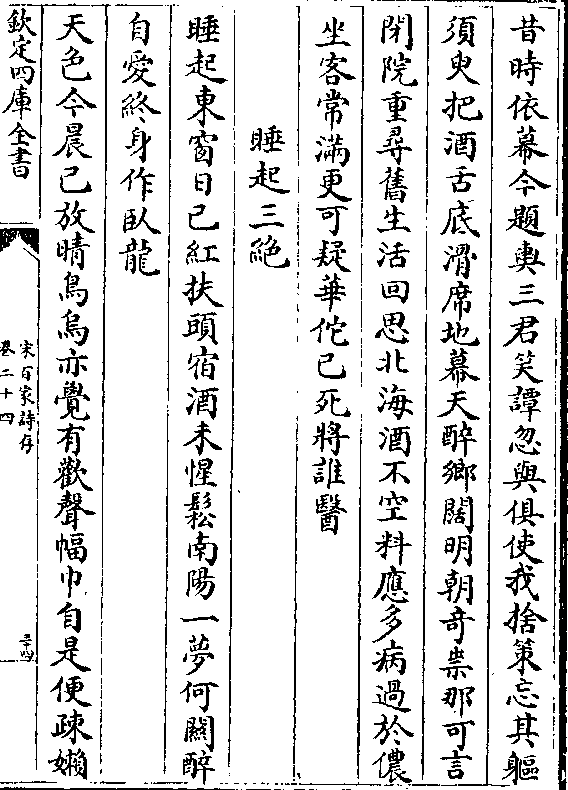 昔時依幕今題輿三君笑譚忽與俱使我捨策忘其軀
須臾把酒舌底滑席地幕天醉鄉闊明朝奇祟那可言
閉院重尋舊生活回思北海酒不空料應多病過於儂
坐客常滿更可疑華佗已死將誰醫
睡起三絕
睡起東窗日已紅扶頭宿酒未惺鬆南陽一夢何關醉
自愛終身作臥龍
天色今晨已放晴鳥烏亦覺有歡聲幅巾自是便疎嬾
欽定四庫全書
宋百家詩存
卷二十四
三十四